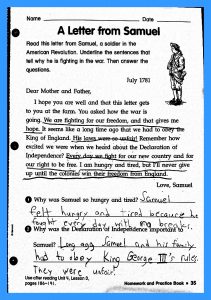 Name Date
A Letter from Samuel
Read this letter from Samuel, a soldier in the
American Revolution. Underline the sentences that
tell why he is fighting in the war. Then answer the
questions.
July 1781
Dear Mother and Father,
I hope you are well and that this letter gets
to you at the farm. You asked how the war is
going. We are fighting for our freedom, and that gives me
hope. It seems like a long time ago that we had to obey the
King of England. His laws were so unfair! Remember how
excited we were when we heard about the Declaration of
Independence? Every day we fight for our new country and for
our right to be free. I am hungry and tired, but I'll never give
up until the colonies win their freedom from England.
Love, Samuel
1 Why was Samuel so hungry and tired? Samuel
felt hungry and tired because he
fought every day with no breaks.
2 Why was the Declaration of Independence important to
Samuel? Long ago, Samuel and his family
had to obey King George III's rules.
They were unfair!
Use after reading Unit 4, Lesson 3,
pages 186-191.
Homework and Practice Book • 35